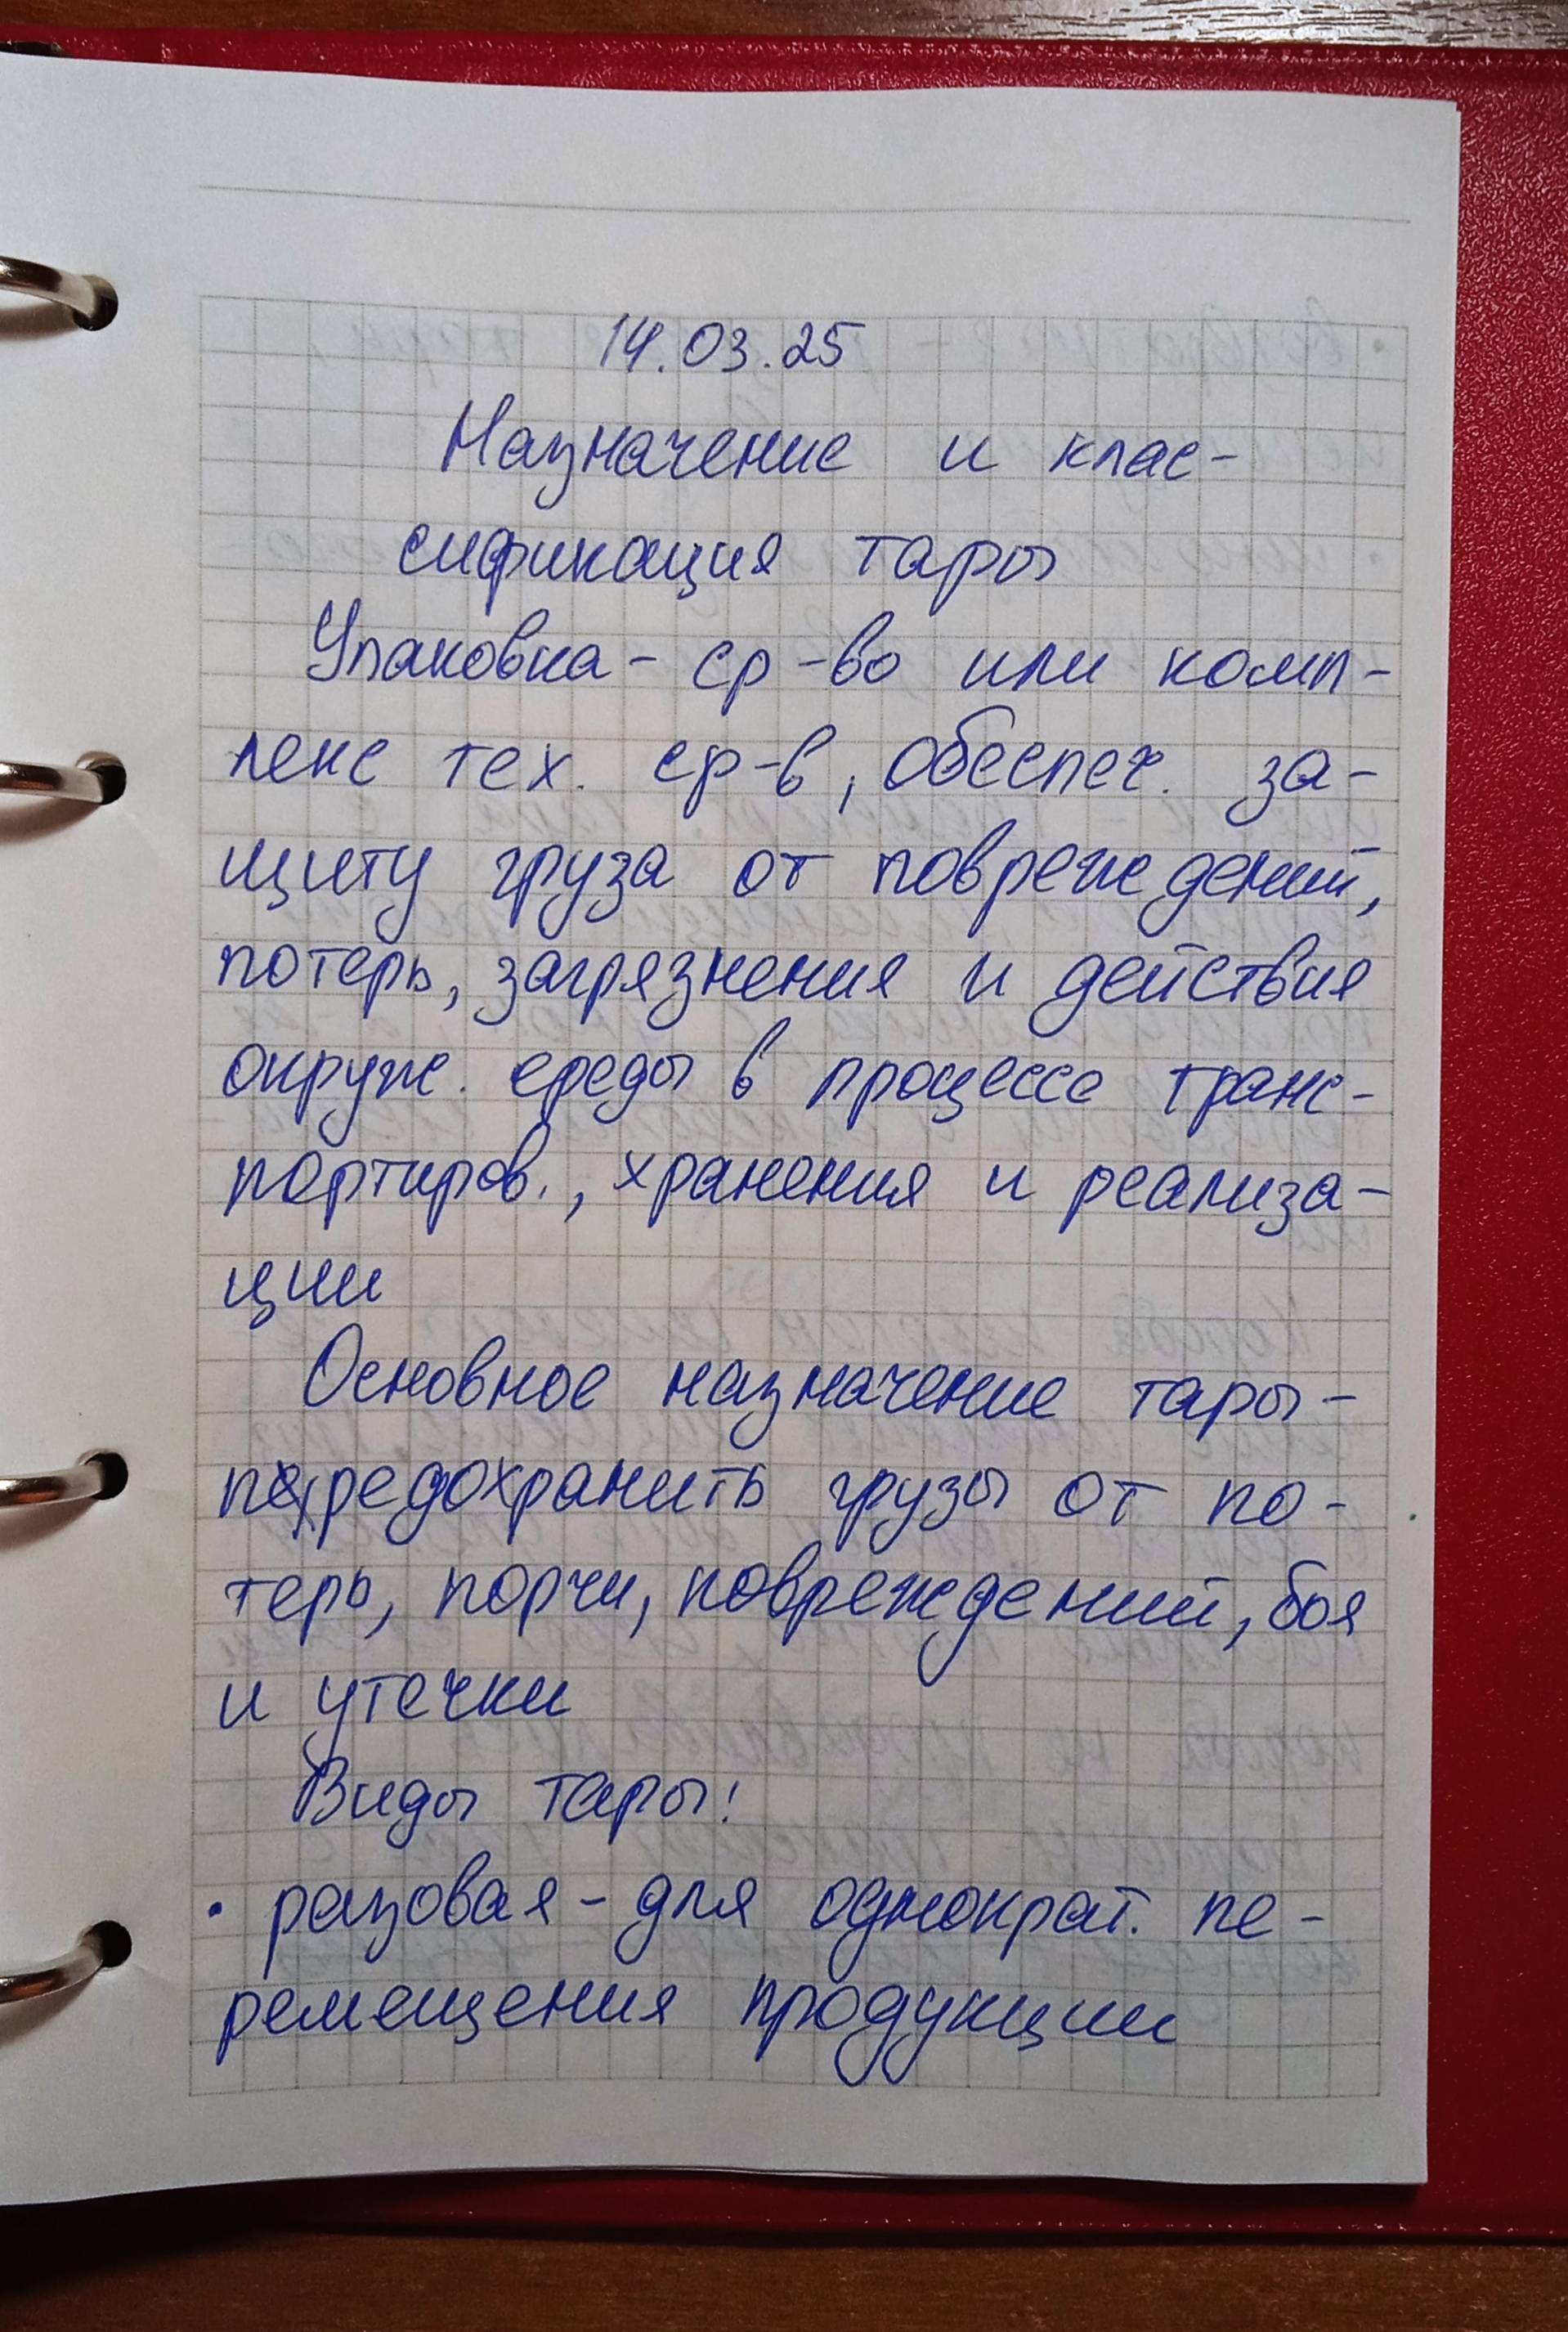 14.03.25
Назначение и клас-
сификация тары
Упаковка - ср-во или комп-
лекс тех. ср-в, обеспеч. за-
щиту груза от повреждений,
потерь, загрязнения и действия
окруж. среды в процессе транс-
портиров., хранения и реализа-
ции
Основное назначение тары -
предохранить грузы от по-
терь, порчи, повреждений, боя
и утечки
Виды тары:
· разовая - для однократ. пе-
ремещения продукции